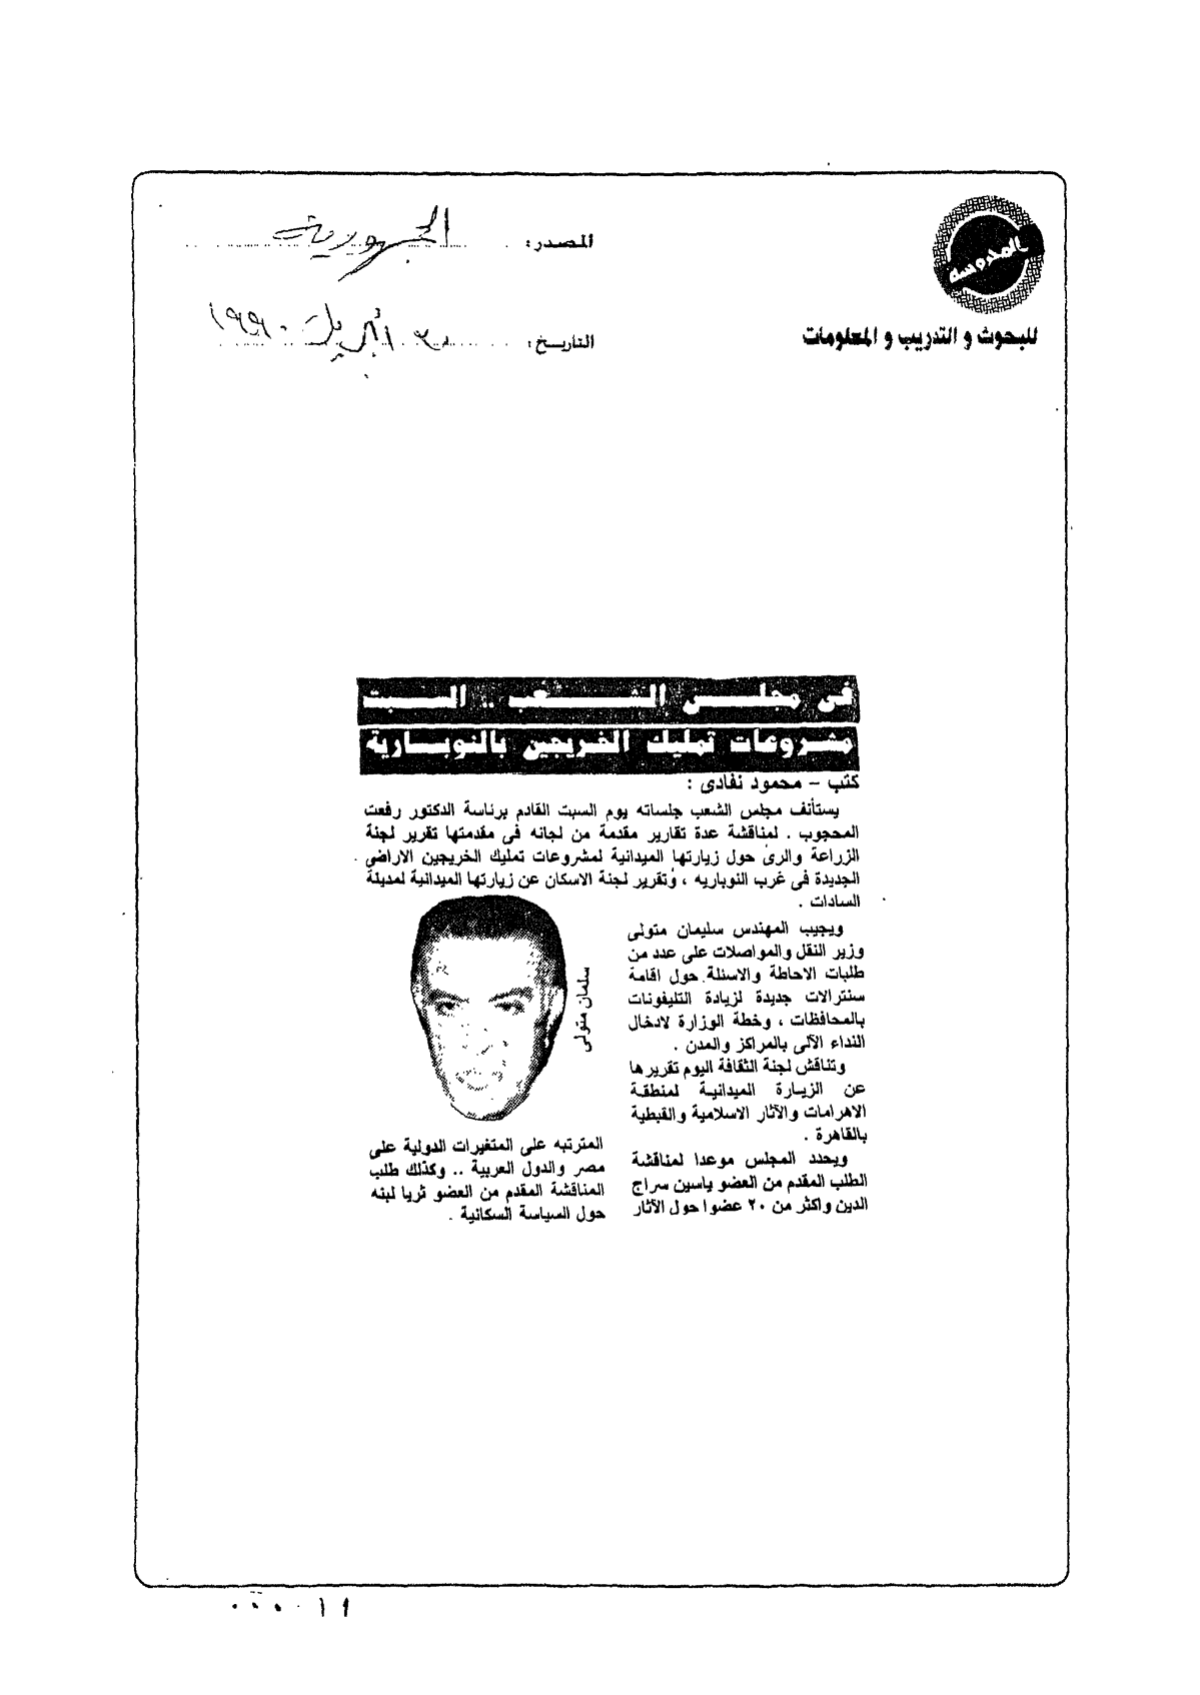 المصدر: الجمهورية
المدروسه
التاريخ: ٣٠ أبريل ١٩٩٠
للبحوث و التدريب و المعلومات
فى مجلس الشعب .. السبت
مشروعات تمليك الخريجين بالنوبارية
كتب - محمود نفادى :
يستأنف مجلس الشعب جلساته يوم السبت القادم برئاسة الدكتور رفعت
المحجوب . لمناقشة عدة تقارير مقدمة من لجانه فى مقدمتها تقرير لجنة
الزراعة والرى حول زيارتها الميدانية لمشروعات تمليك الخريجين الاراضى
الجديدة فى غرب النوباريه ، وتقرير لجنة الاسكان عن زيارتها الميدانية لمدينة
السادات .
ويجيب المهندس سليمان متولى
وزير النقل والمواصلات على عدد من
طلبات الاحاطة والاسئلة حول اقامة
سنترالات جديدة لزيادة التليفونات
بالمحافظات ، وخطة الوزارة لادخال
النداء الآلى بالمراكز والمدن .
وتناقش لجنة الثقافة اليوم تقريرها
عن الزيارة الميدانية لمنطقة
الاهرامات والآثار الاسلامية والقبطية
بالقاهرة .
ويحدد المجلس موعدا لمناقشة
الطلب المقدم من العضو ياسين سراج
الدين واكثر من ٢٠ عضوا حول الآثار
سلمان متولى
المترتبه على المتغيرات الدولية على
مصر والدول العربية .. وكذلك طلب
المناقشة المقدم من العضو ثريا لبنه
حول السياسة السكانية .